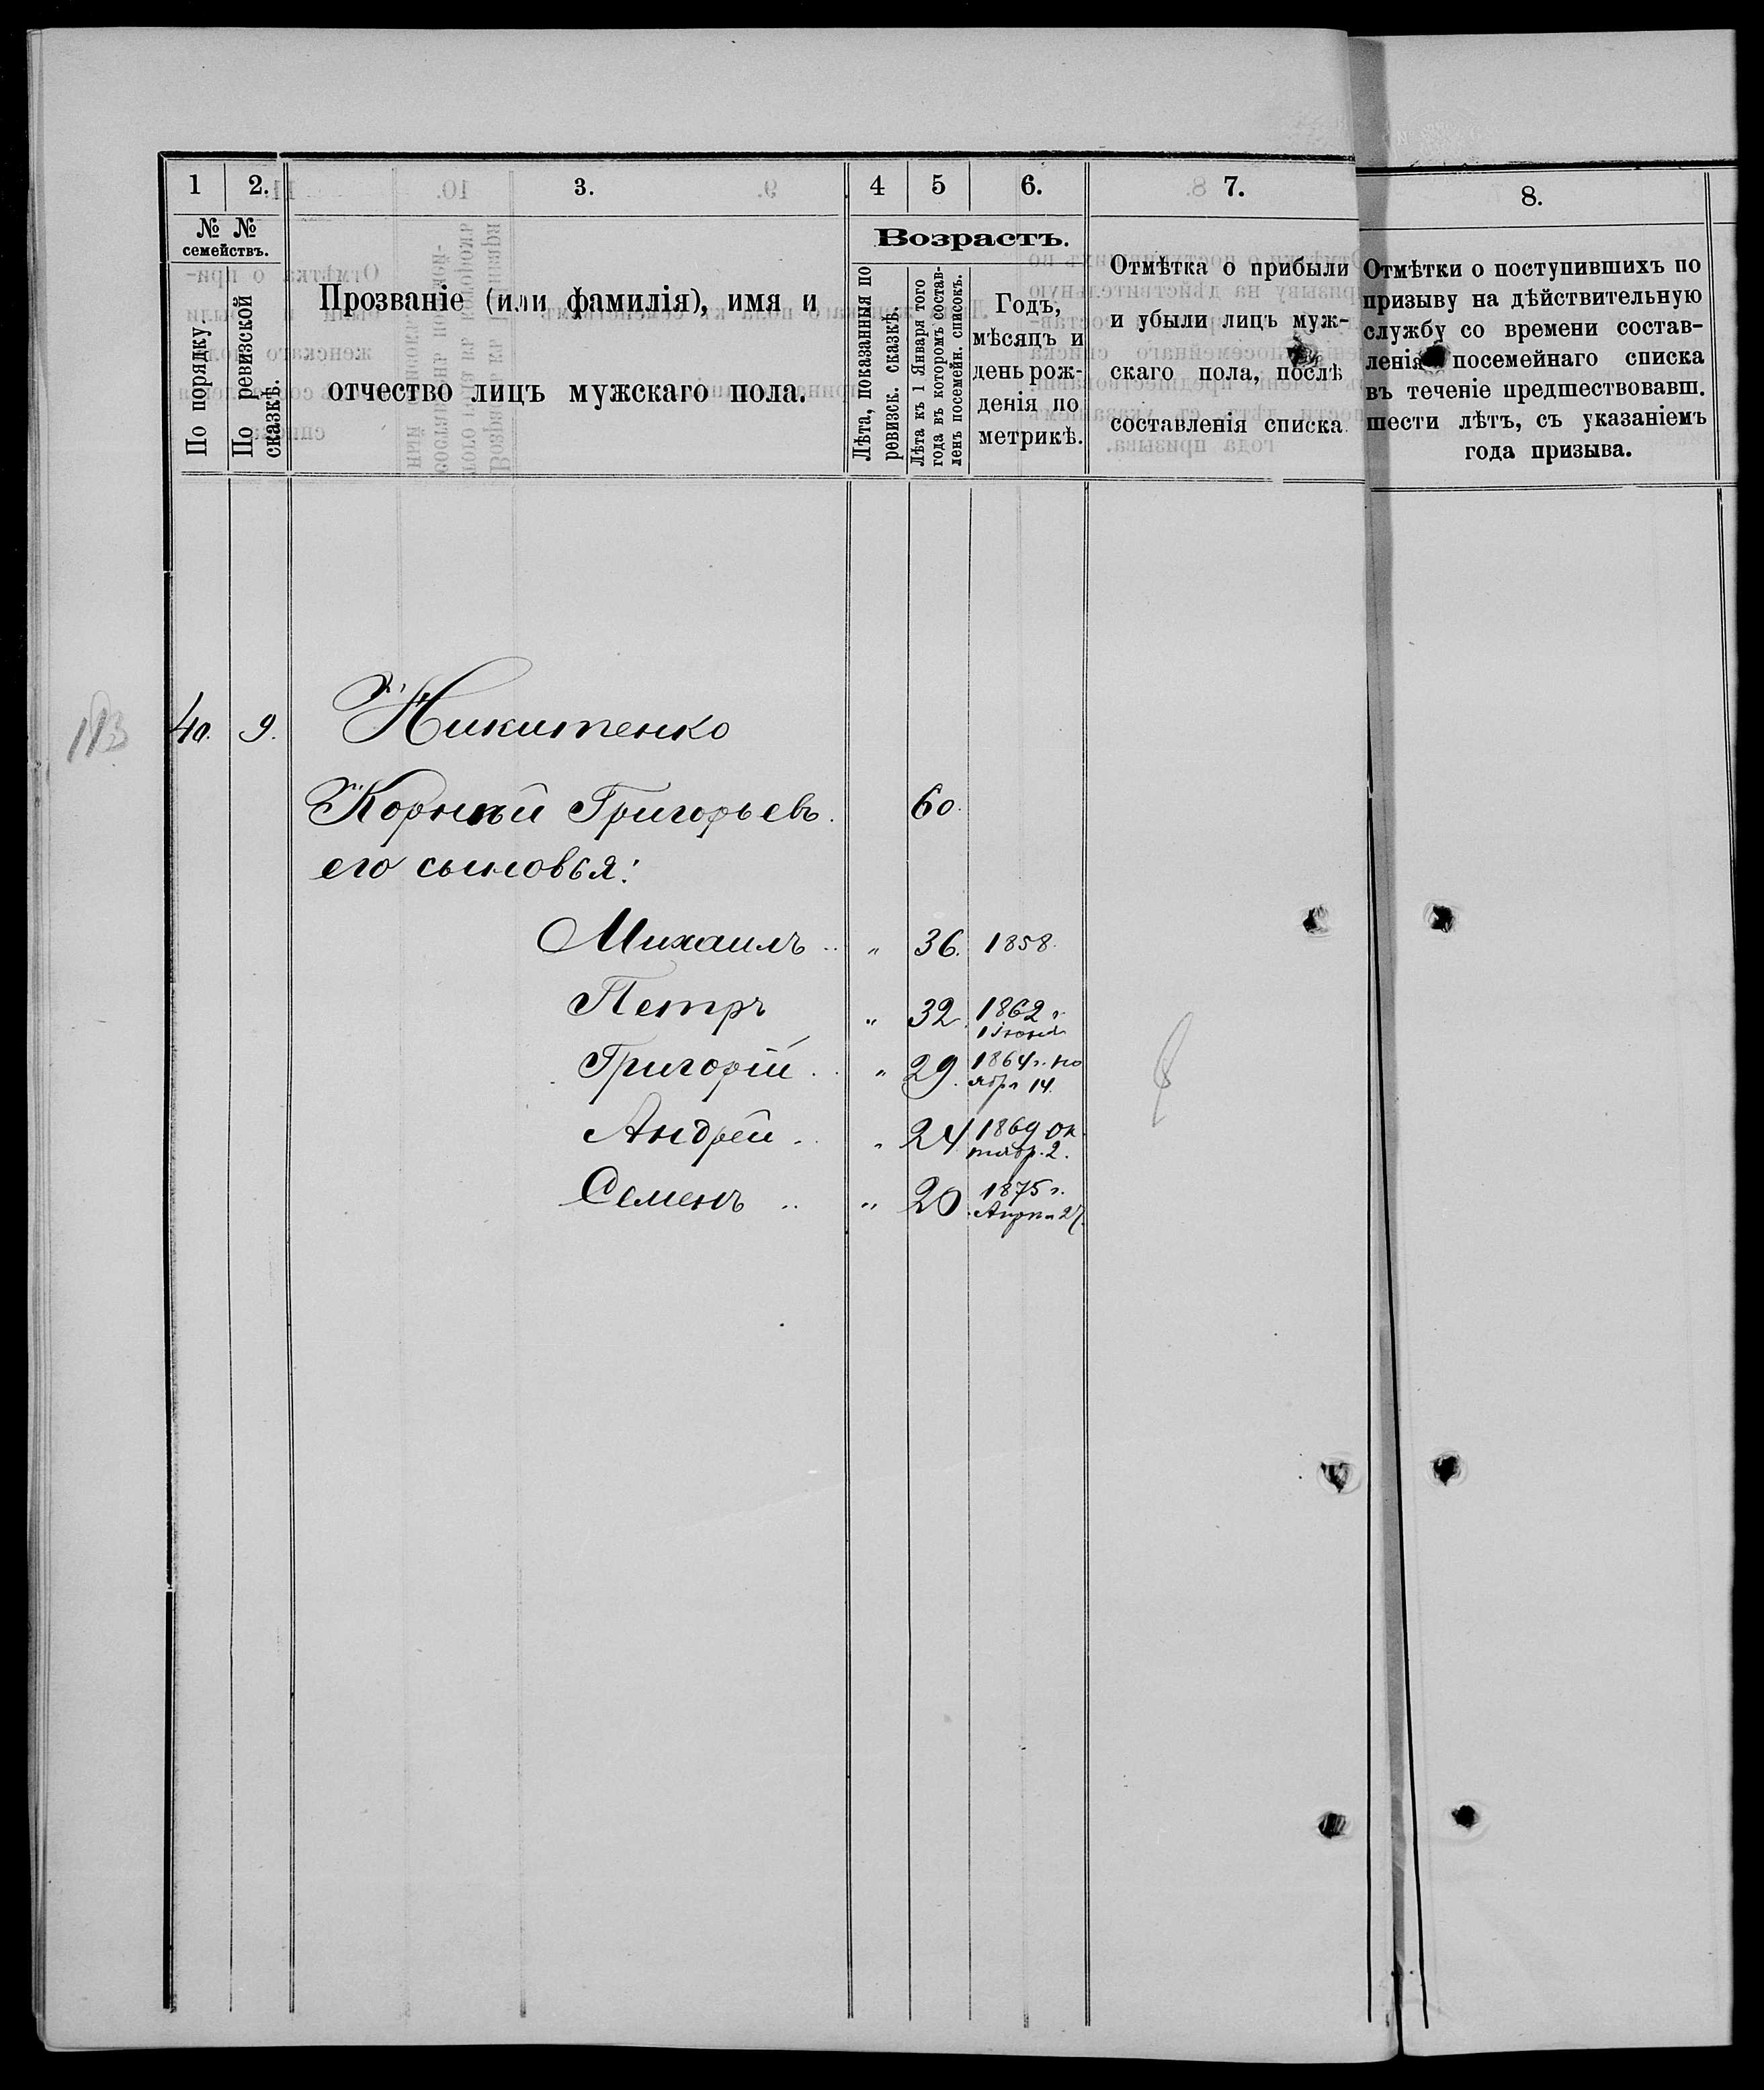 1 2. 3. 4 5 6. 7. 8.
№ №
семействъ.
По порядку.
По ревизской
сказкѣ.
Прозваніе (или фамилія), имя и
отчество лицъ мужскаго пола.
Возрастъ.
Лѣта, показанныя по
ревизск. сказкѣ.
Лѣта къ 1 Января того
года въ которомъ состав-
ленъ посемейн. списокъ.
Годъ,
мѣсяцъ и
день рож-
денія по
метрикѣ.
Отмѣтка о прибыли
и убыли лицъ муж-
скаго пола, послѣ
составленія списка
Отмѣтки о поступившихъ по
призыву на дѣйствительную
службу со времени состав-
ленія посемейнаго списка
въ теченіе предшествовавш.
шести лѣтъ, съ указаніемъ
года призыва.
40. 9. Никитенко
Корнѣй Григорьевъ. 60.
его сыновья:
Михаилъ .. " 36. 1858.
Петръ " 32. 1862 г.
1 іюня
Григорій . " 29. 1864 г. но
ябр. 14.
Андрей .. " 24 1869 ок
тябр. 2.
Семенъ .. " 20 1875 г.
Апрѣл 27.